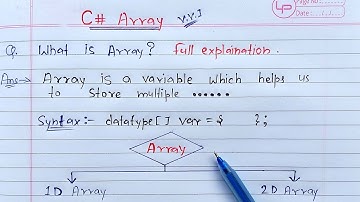 C# Array V.V.I
Page No.:
Date:
Q. What is Array? full explaination.
Ans→ Array is a variable which helps us
to Store multiple ......
Syntax:- datatype[] var = { };
Array
1D Array 2D Array